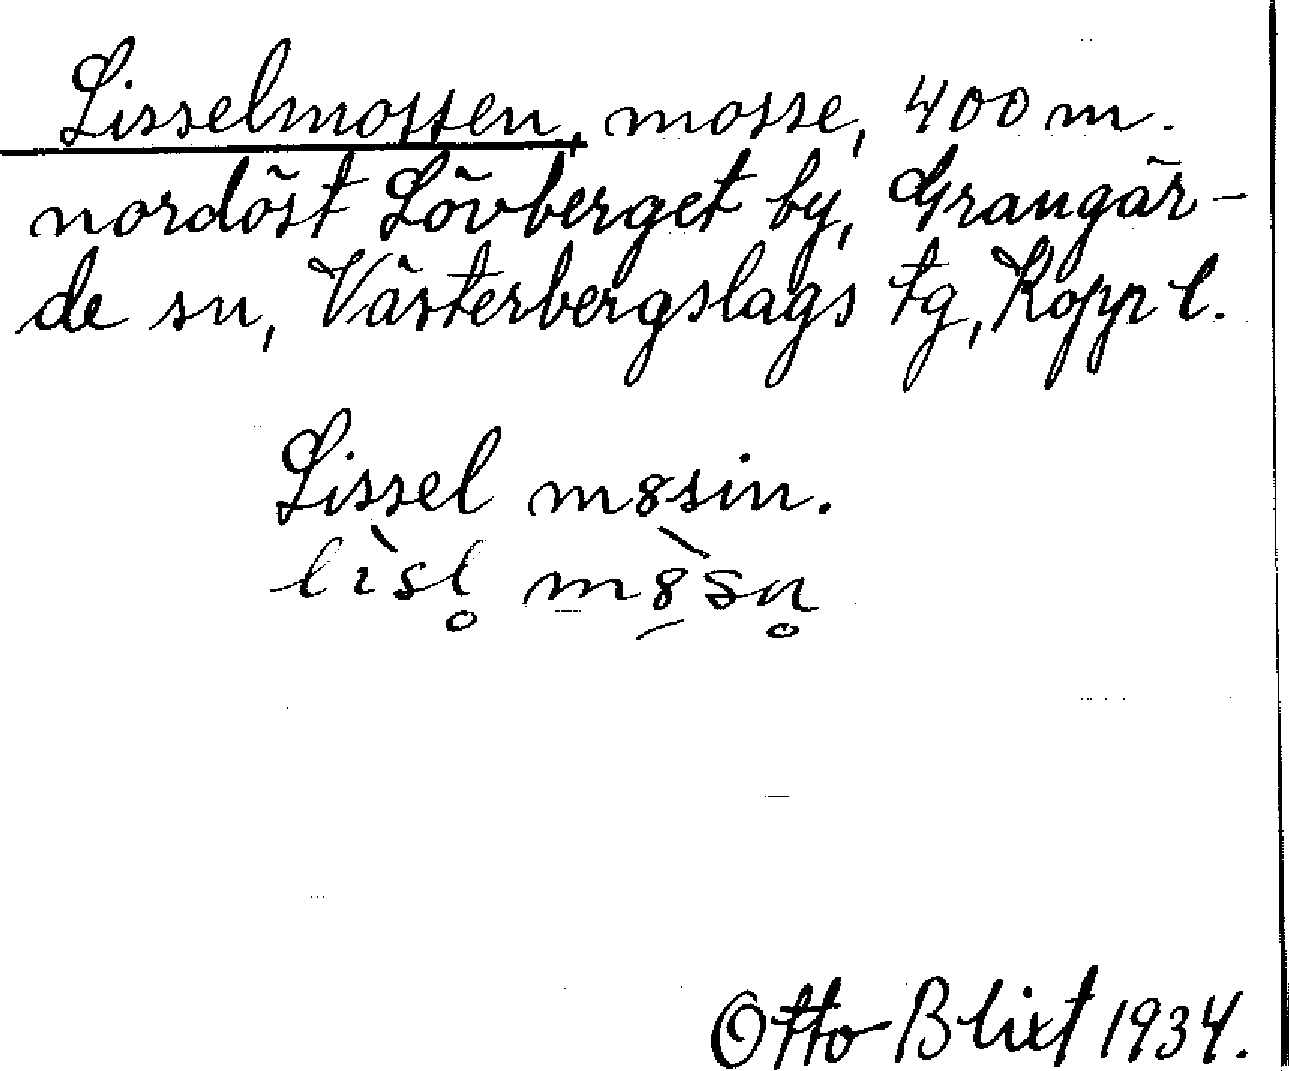 Lisselmossen, mosse, 400 m.
nordöst Lövberget by, Grangär-
de sn, Västerbergslags tg, Kopp l.
Lissel m8sin.
lìsl̥ m8̀sn̥
Otto Blixt 1934.